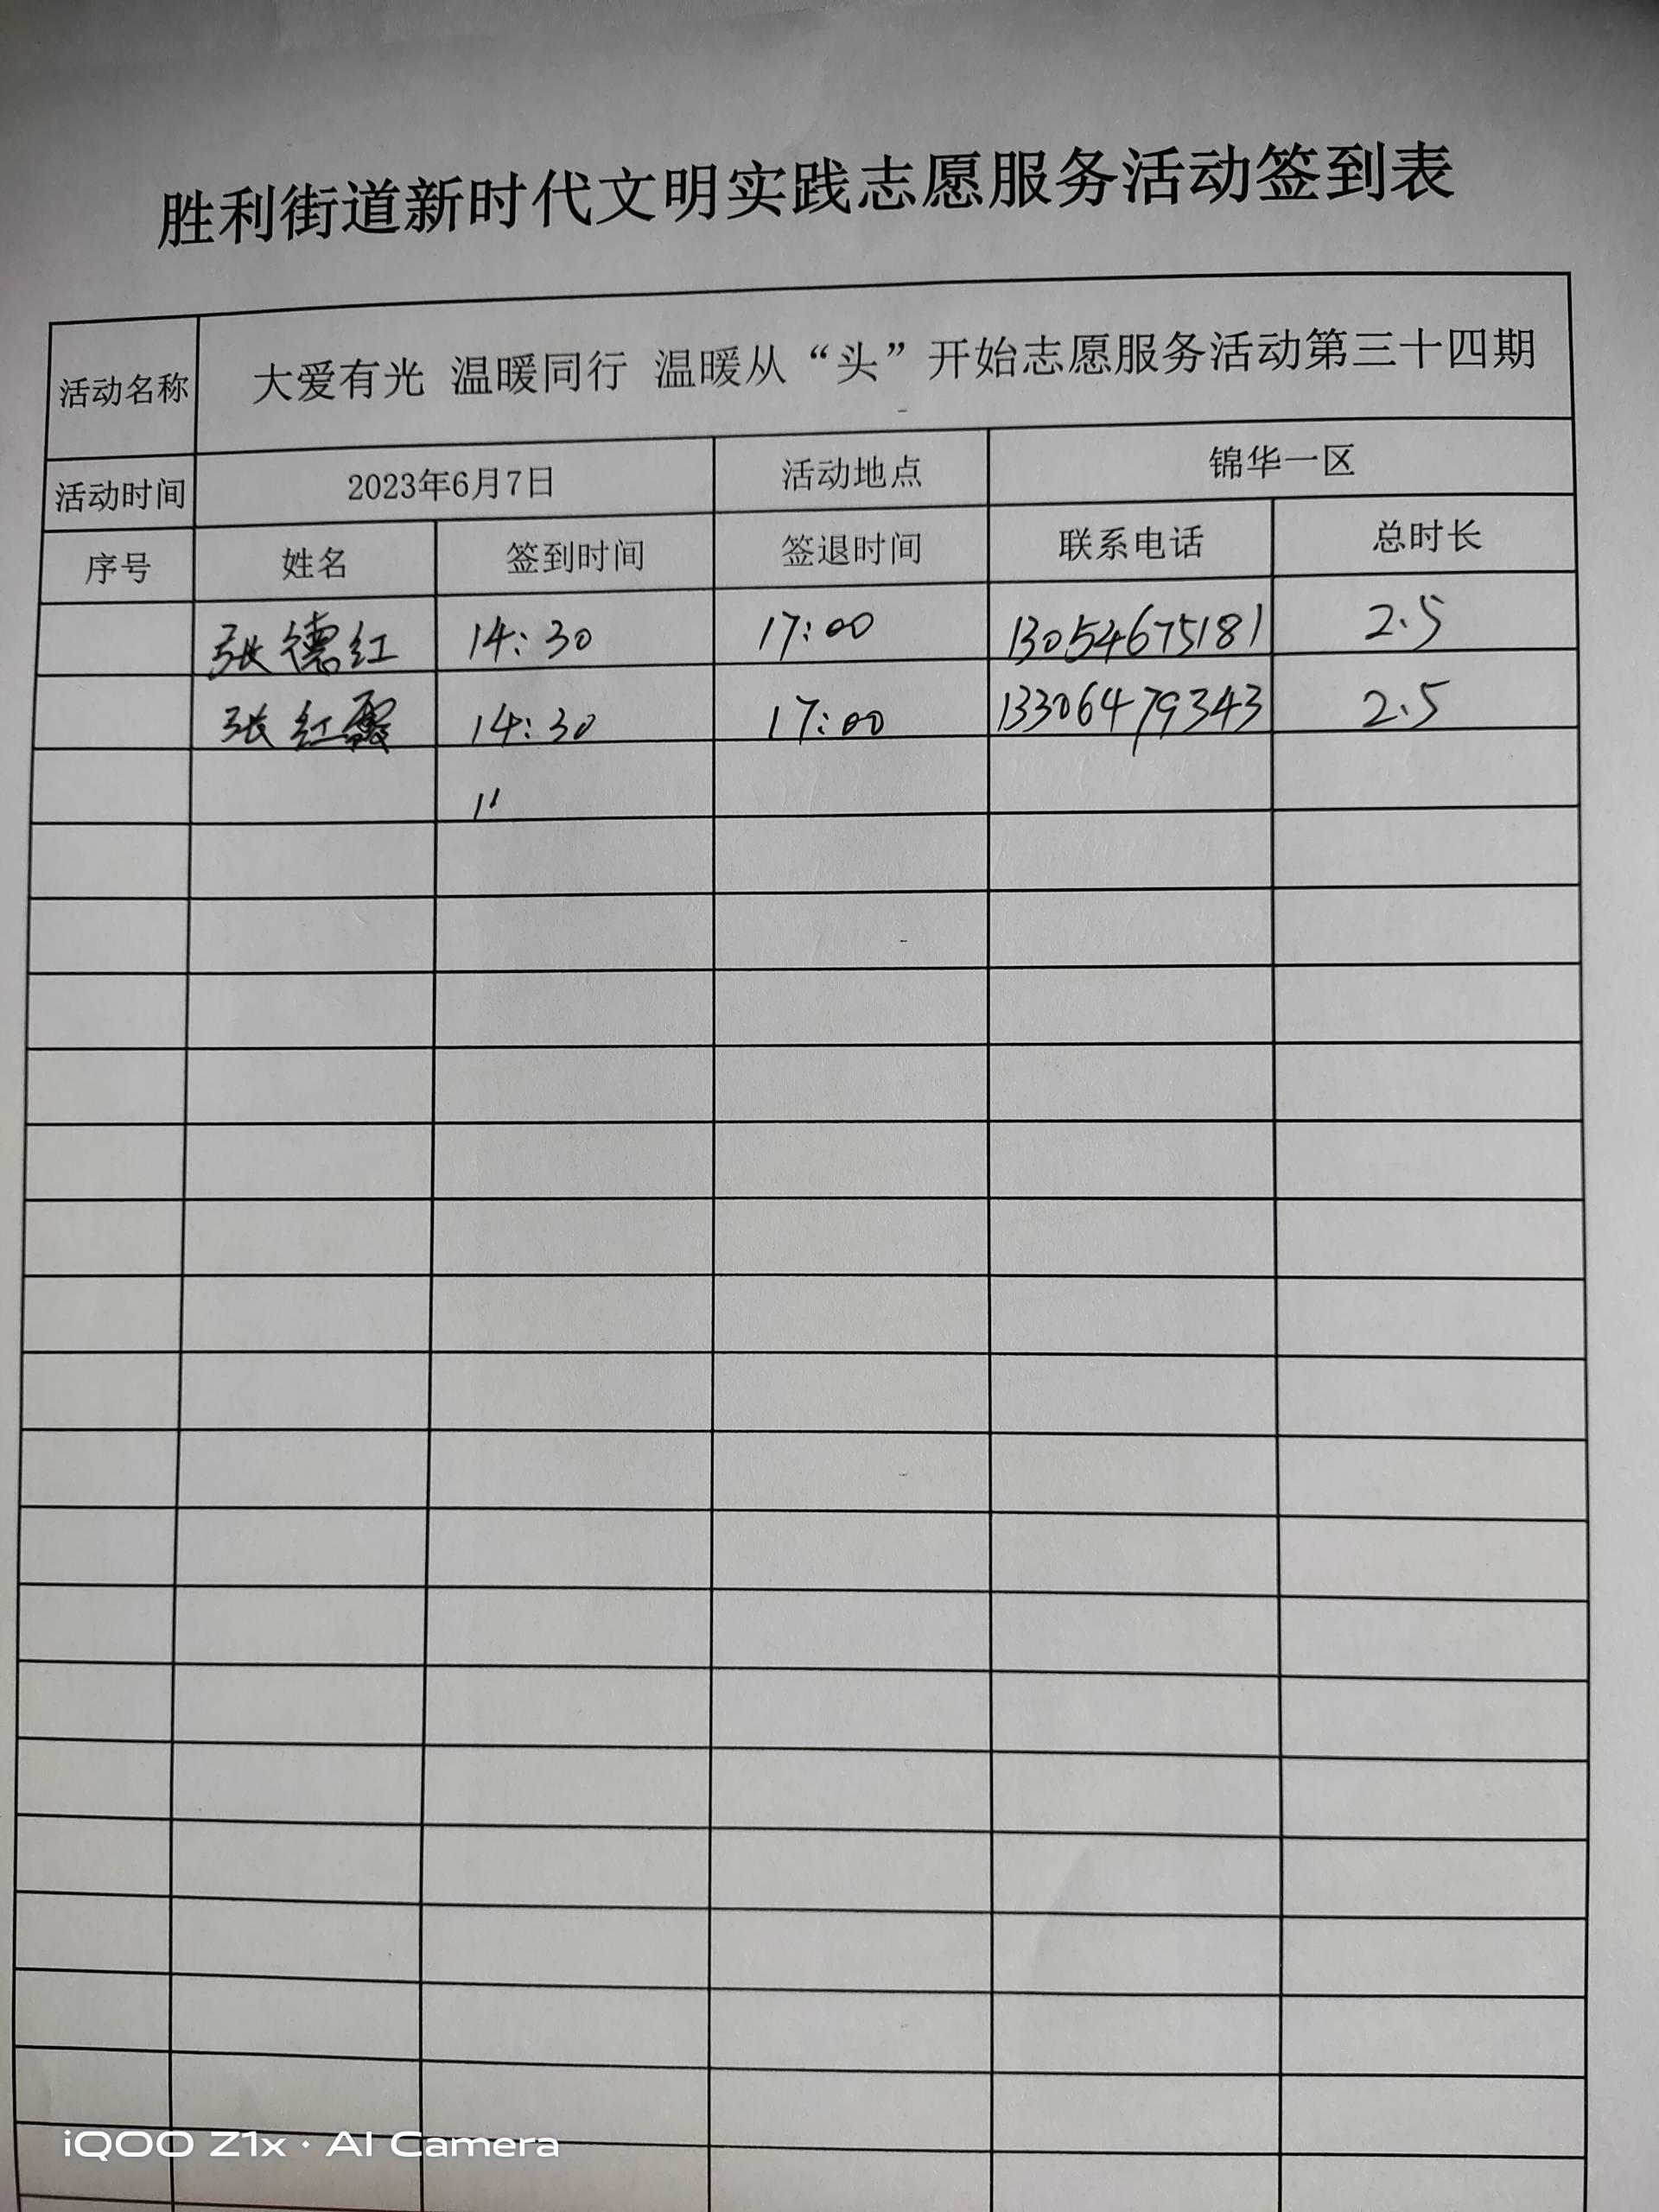 胜利街道新时代文明实践志愿服务活动签到表
活动名称 大爱有光 温暖同行 温暖从“头”开始志愿服务活动第三十四期
活动时间 2023年6月7日 活动地点 锦华一区
序号 姓名 签到时间 签退时间 联系电话 总时长
张德红 14:30 17:00 13054675181 2.5
张红霞 14:30 17:00 13306479343 2.5
iQOO Z1x · AI Camera